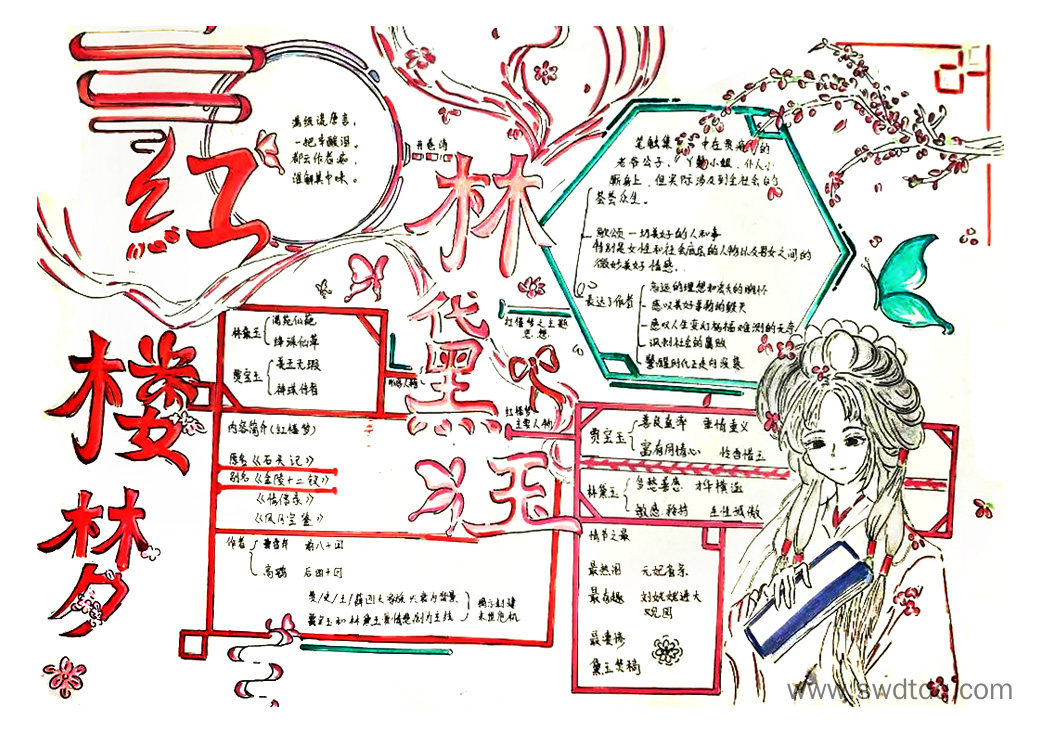 红
楼
梦
林
黛
玉
满纸荒唐言，
一把辛酸泪。
都云作者痴，
谁解其中味。
开卷诗
笔触集中在贵族的
老爷公子、丫鬟小姐、仆人小
厮身上，但实际涉及到全社会的
芸芸众生。
歌颂一切美好的人和事
特别是女性和社会底层的人物以及男女之间的
微妙美好情感。
表达了作者
感叹美好事物的毁灭
感叹人生变幻祸福难测的无奈
讽刺社会的腐败
红楼梦之主题
思想
林黛玉
绛珠仙草
贾宝玉
美玉无瑕
神瑛侍者
内容简介(红楼梦)
原名《石头记》
别名《金陵十二钗》
《情僧录》
《风月宝鉴》
作者
曹雪芹 前八十回
高鹗 后四十回
贾/史/王/薛四大家族兴衰为背景
贾宝玉和林黛玉爱情悲剧为主线
揭示封建
末世危机
红楼梦
主要人物
贾宝玉
善良直率 重情重义
富有同情心
林黛玉
多愁善感 才华横溢
敏感
情节之最
最热闹 元妃省亲
最有趣 刘姥姥进大
观园
最凄惨
黛玉焚稿